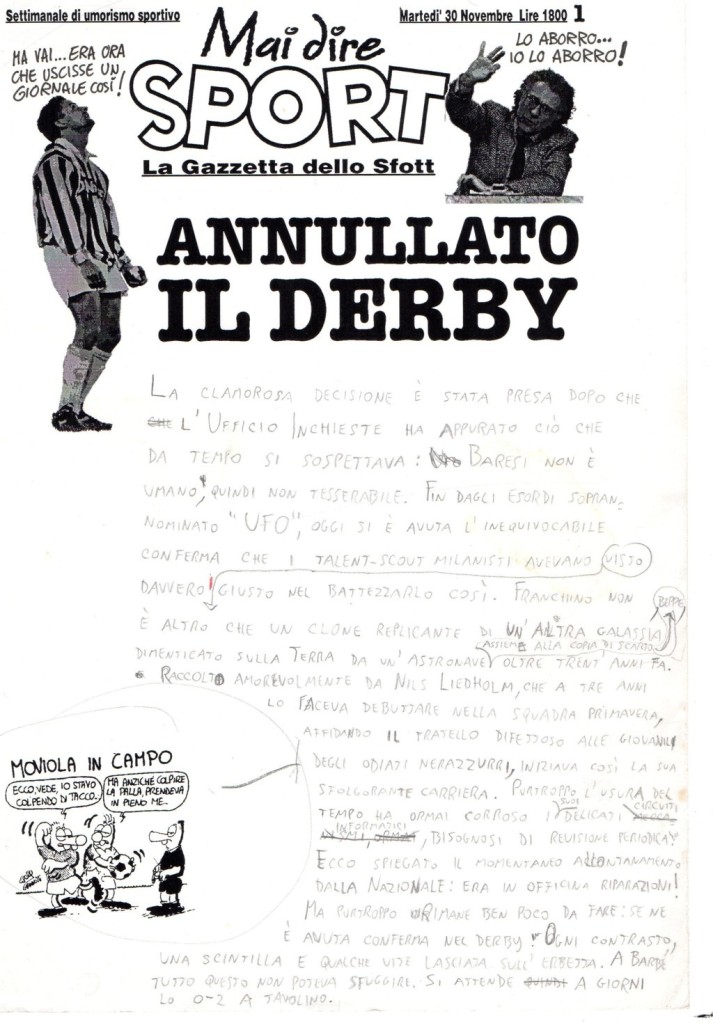 Settimanale di umorismo sportivo
Martedi' 30 Novembre Lire 1800 1
Mai dire
SPORT
La Gazzetta dello Sfott
MA VAI...ERA ORA
CHE USCISSE UN
GIORNALE COSÌ!
LO ABORRO...
IO LO ABORRO!
ANNULLATO
IL DERBY
LA CLAMOROSA DECISIONE È STATA PRESA DOPO CHE
CHE L'UFFICIO INCHIESTE HA APPURATO CIÒ CHE
DA TEMPO SI SOSPETTAVA: BARESI NON È
UMANO, QUINDI NON TESSERABILE. FIN DAGLI ESORDI SOPRAN=
NOMINATO "UFO", OGGI SI È AVUTA L'INEQUIVOCABILE
CONFERMA CHE I TALENT-SCOUT MILANISTI AVEVANO VISTO
DAVVERO GIUSTO NEL BATTEZZARLO COSÌ. FRANCHINO NON
BEPPE
È ALTRO CHE UN CLONE REPLICANTE DI UN'ALTRA GALASSIA
ASSIEME ALLA COPIA DI SCARTO
DIMENTICATO SULLA TERRA DA UN'ASTRONAVE OLTRE TRENT'ANNI FA.
RACCOLTO AMOREVOLMENTE DA NILS LIEDHOLM, CHE A TRE ANNI
LO FACEVA DEBUTTARE NELLA SQUADRA PRIMAVERA,
AFFIDANDO IL FRATELLO DIFETTOSO ALLE GIOVANILI
DEGLI ODIATI NERAZZURRI, INIZIAVA COSÌ LA SUA
SFOLGORANTE CARRIERA. PURTROPPO L'USURA DEL
TEMPO HA ORMAI CORROSO I SUOI DELICATI CIRCUITI
INFORMATICI, BISOGNOSI DI REVISIONE PERIODICA.
ECCO SPIEGATO IL MOMENTANEO ALLONTANAMENTO
DALLA NAZIONALE: ERA IN OFFICINA RIPARAZIONI!
MA PURTROPPO RIMANE BEN POCO DA FARE: SE NE
È AVUTA CONFERMA NEL DERBY! OGNI CONTRASTO,
UNA SCINTILLA E QUALCHE VITE LASCIATA SULL'ERBETTA. A BARBÉ
TUTTO QUESTO NON POTEVA SFUGGIRE. SI ATTENDE QUINDI A GIORNI
LO 0-2 A TAVOLINO.
MOVIOLA IN CAMPO
ECCO, VEDE, IO STAVO
COLPENDO DI TACCO...
MA ANZICHÉ COLPIRE
LA PALLA, PRENDEVA
IN PIENO ME...